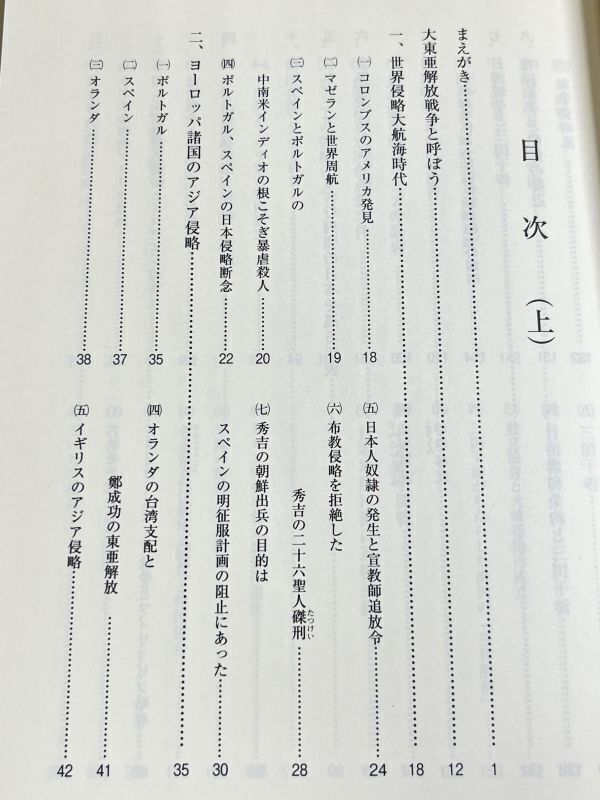 目次(上)
まえがき……………1
大東亜解放戦争と呼ぼう……………12
一、世界侵略大航海時代……………18
㈠コロンブスのアメリカ発見……………18
㈡マゼランと世界周航……………19
㈢スペインとポルトガルの
中南米インディオの根こそぎ暴虐殺人……………20
㈣ポルトガル、スペインの日本侵略断念……………22
㈤日本人奴隷の発生と宣教師追放令……………24
㈥布教侵略を拒絶した
秀吉の二十六聖人磔刑(たつけい)……………28
㈦秀吉の朝鮮出兵の目的は
スペインの明征服計画の阻止にあった……………30
二、ヨーロッパ諸国のアジア侵略……………35
㈠ポルトガル……………35
㈡スペイン……………37
㈢オランダ……………38
㈣オランダの台湾支配と
鄭成功の東亜解放……………41
㈤イギリスのアジア侵略……………42